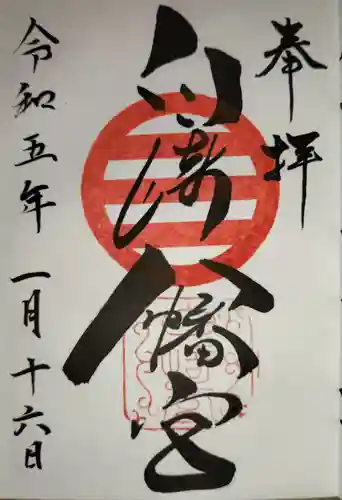 奉拝
白瀬八幡宮
令和五年 一月十六日